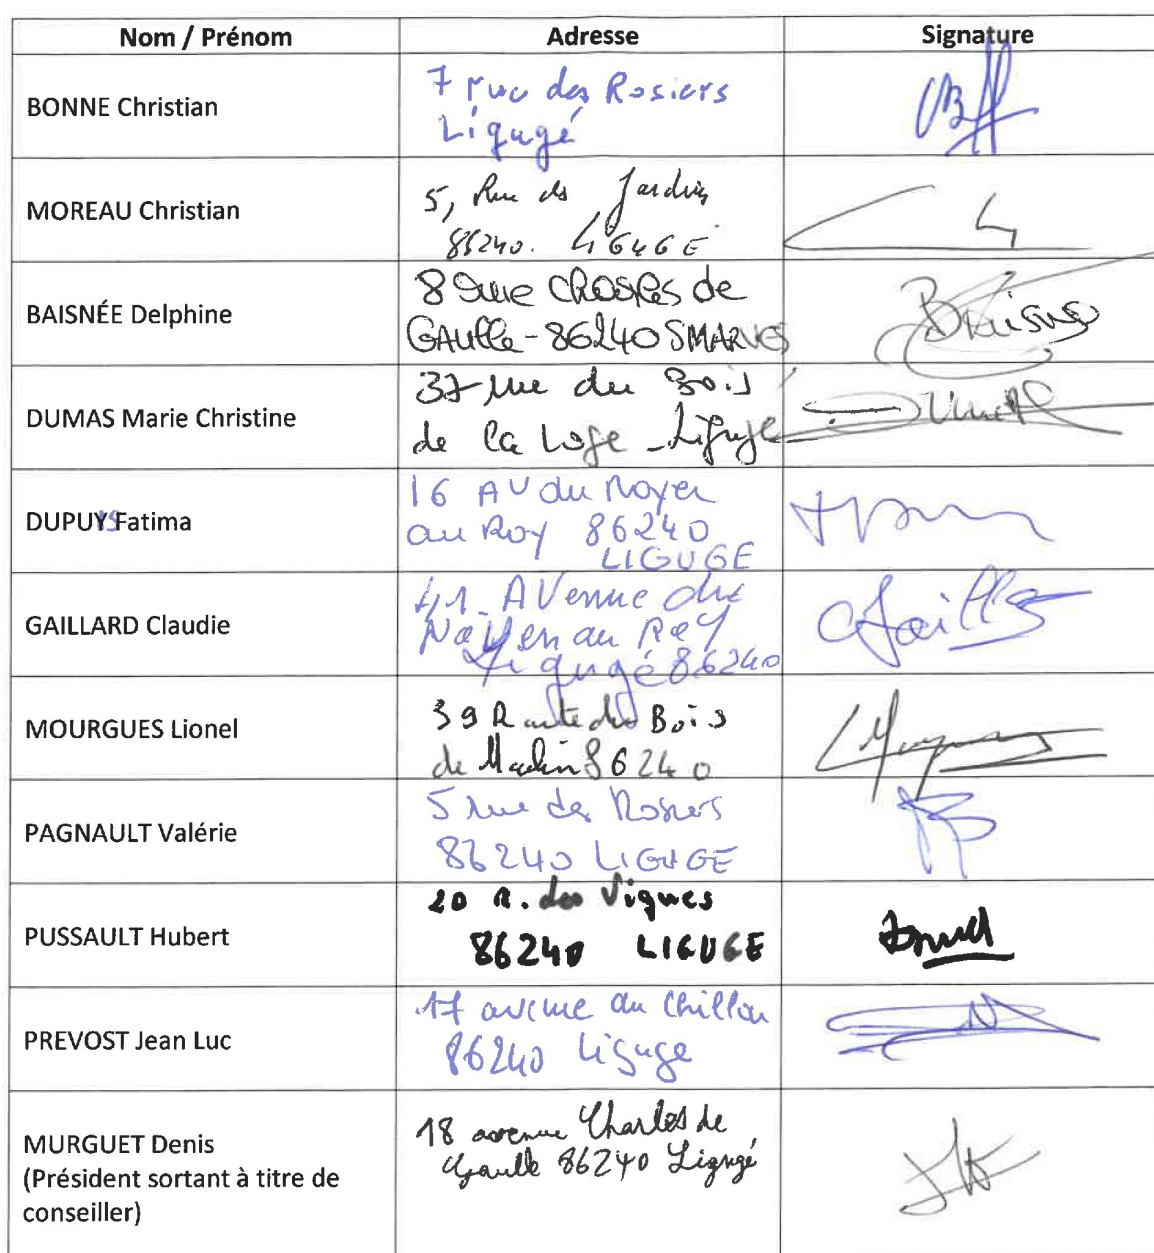 Nom / Prénom Adresse Signature
BONNE Christian
7 rue des Rosiers
Ligugé
MOREAU Christian
5, Rue des Jardins
86240. LIGUGE
BAISNÉE Delphine
8 rue Charles de
GAulle - 86240 SMARVES
Baisnée
DUMAS Marie Christine
37 rue du Bois
de la Loge - Ligugé
DUPUYS Fatima
16 AV du Noyer
au Roy 86240
LIGUGE
GAILLARD Claudie
41 - AVenue du
Noyer au Roy
Ligugé 86240
MOURGUES Lionel
39 Route du Bois
de Maulin 86240
PAGNAULT Valérie
5 rue des Rosiers
86240 LIGUGE
PUSSAULT Hubert
20 R. des Vignes
86240 LIGUGE
PREVOST Jean Luc
17 avenue du Chillou
86240 Ligugé
MURGUET Denis
(Président sortant à titre de
conseiller)
18 avenue Charles de
Gaulle 86240 Ligugé